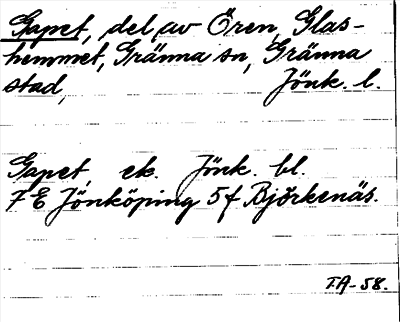 Gapet, del av Ören, Glas-
hemmet, Gränna sn, Gränna
stad, Jönk. l.
Gapet, ek. Jönk. bl.
7 E Jönköping 5 f Björkenäs.
T.A-58.